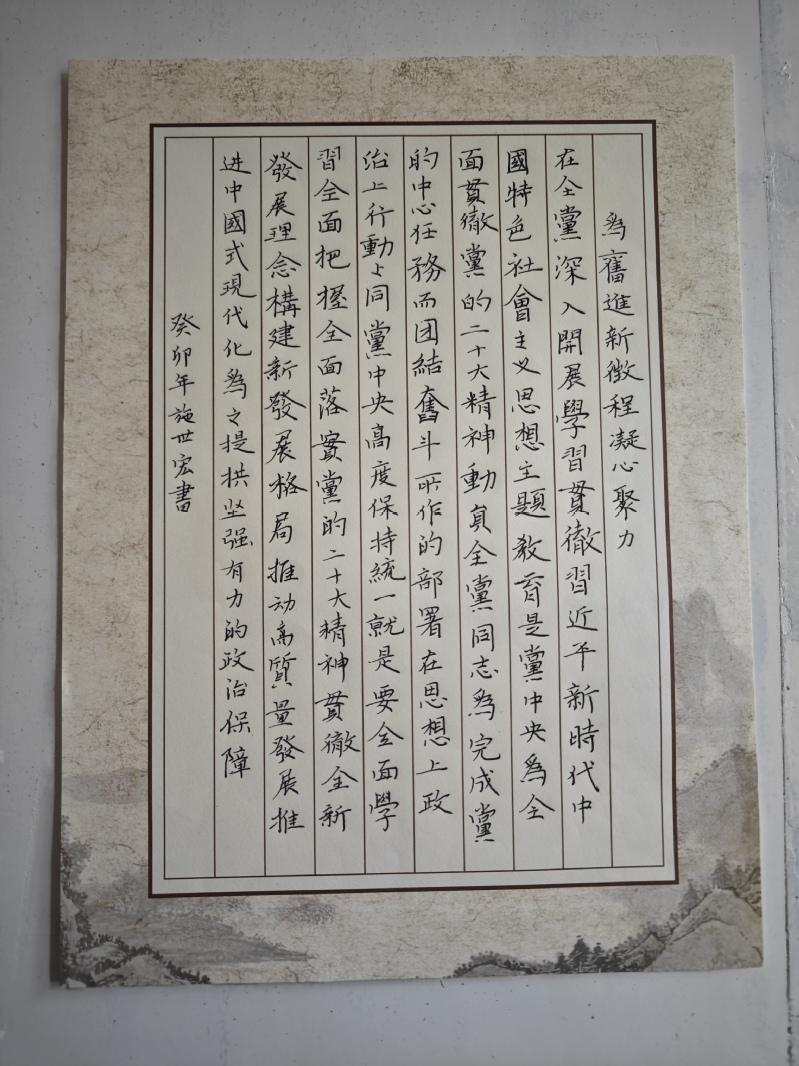 為奮進新徵程凝心聚力
在全黨深入開展學習貫徹習近平新時代中
國特色社會主义思想主題教育是黨中央為全
面貫徹黨的二十大精神動員全黨同志為完成黨
的中心任務而团結奮斗所作的部署在思想上政
治上行動上同黨中央高度保持統一就是要全面學
習全面把握全面落實黨的二十大精神貫徹全新
發展理念構建新發展格局推动高質量發展推
进中國式現代化為之提拱坚强有力的政治保障
癸卯年施世宏書